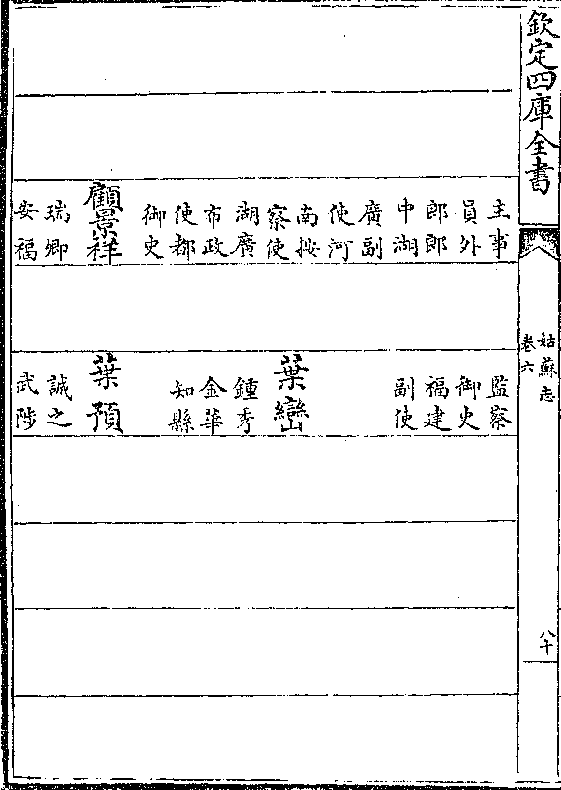 欽定四庫全書
姑蘇志
卷六
八十
主事
員外
郎郎
中湖
廣副
使河
南按
察使
湖廣
布政
使都
御史
顧景祥
瑞卿
安福
監察
御史
福建
副使
葉巒
鍾秀
金華
知縣
葉預
誠之
武陟